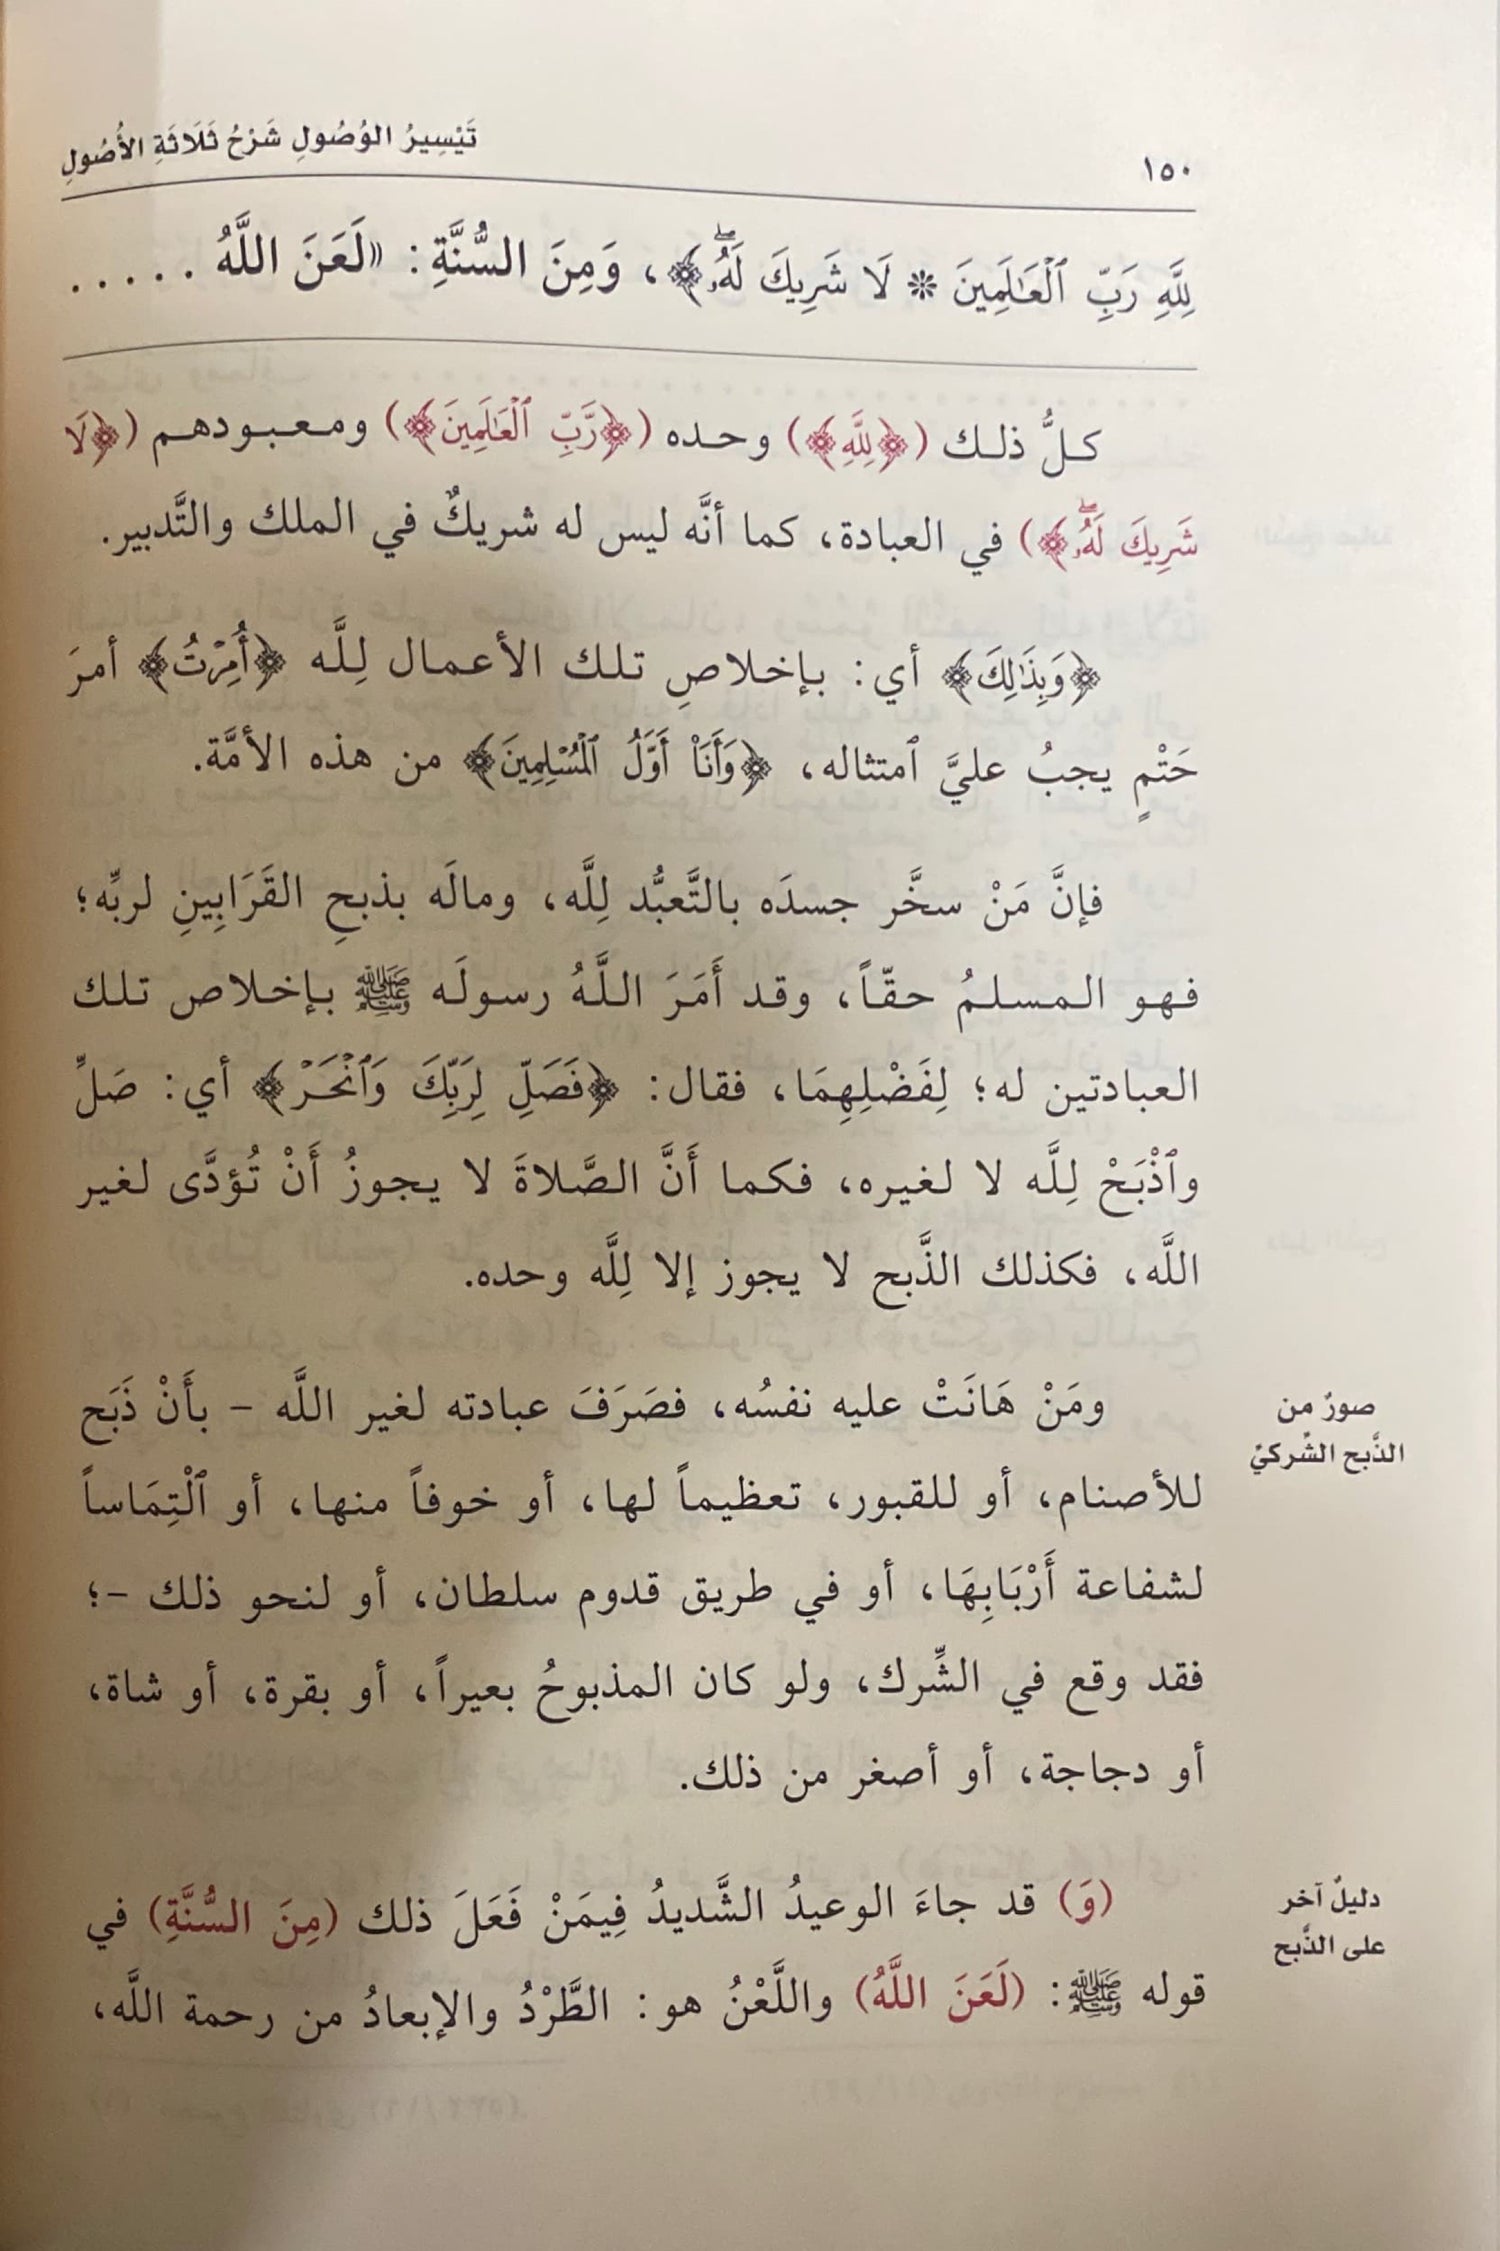 ١٥٠
تَيْسِيرُ الوُصُولِ شَرْحُ ثَلَاثَةِ الأُصُولِ
لِلَّهِ رَبِّ ٱلْعَٰلَمِينَ ❊ لَا شَرِيكَ لَهُۥۖ﴾، وَمِنَ السُّنَّةِ: «لَعَنَ اللَّهُ . . . . .
كلُّ ذلك (﴿لِلَّهِ﴾) وحده (﴿رَبِّ ٱلْعَٰلَمِينَ﴾) ومعبودهم (﴿لَا
شَرِيكَ لَهُۥۖ﴾) في العبادة، كما أنَّه ليس له شريكٌ في الملك والتَّدبير.
﴿وَبِذَٰلِكَ﴾ أي: بإخلاصِ تلك الأعمال لِلَّه ﴿أُمِرْتُ﴾ أمرَ
حَتْمٍ يجبُ عليَّ ٱمتثاله، ﴿وَأَنَا۠ أَوَّلُ ٱلْمُسْلِمِينَ﴾ من هذه الأمَّة.
فإنَّ مَنْ سخَّر جسدَه بالتَّعبُّد لِلَّه، ومالَه بذبحِ القَرَابِينِ لربِّه؛
فهو المسلمُ حقّاً، وقد أَمَرَ اللَّهُ رسولَه ﷺ بإخلاص تلك
العبادتين له؛ لِفَضْلِهِمَا، فقال: ﴿فَصَلِّ لِرَبِّكَ وَٱنْحَرْ﴾ أي: صَلِّ
وٱذْبَحْ لِلَّه لا لغيره، فكما أَنَّ الصَّلاةَ لا يجوزُ أَنْ تُؤدَّى لغير
اللَّه، فكذلك الذَّبح لا يجوز إلا لِلَّه وحده.
صورٌ من
الذَّبح الشِّركيِّ
ومَنْ هَانَتْ عليه نفسُه، فصَرَفَ عبادته لغير اللَّه - بأَنْ ذَبَح
للأصنام، أو للقبور، تعظيماً لها، أو خوفاً منها، أو ٱلْتِمَاساً
لشفاعة أَرْبَابِهَا، أو في طريق قدوم سلطان، أو لنحو ذلك -؛
فقد وقع في الشِّرك، ولو كان المذبوحُ بعيراً، أو بقرة، أو شاة،
أو دجاجة، أو أصغر من ذلك.
دليلٌ آخر
على الذَّبح
(وَ) قد جاءَ الوعيدُ الشَّديدُ فِيمَنْ فَعَلَ ذلك (مِنَ السُّنَّةِ) في
قوله ﷺ: (لَعَنَ اللَّهُ) واللَّعْنُ هو: الطَّرْدُ والإبعادُ من رحمة اللَّه،